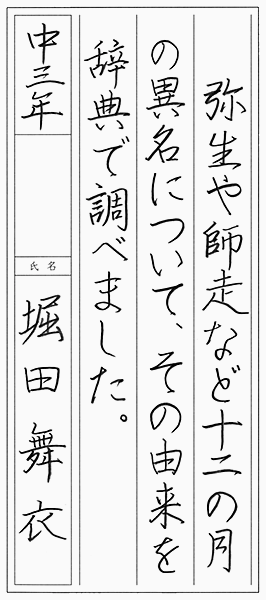 弥生や師走など十二の月
の異名について、その由来を
辞典で調べました。
中三年
氏名
堀田舞衣